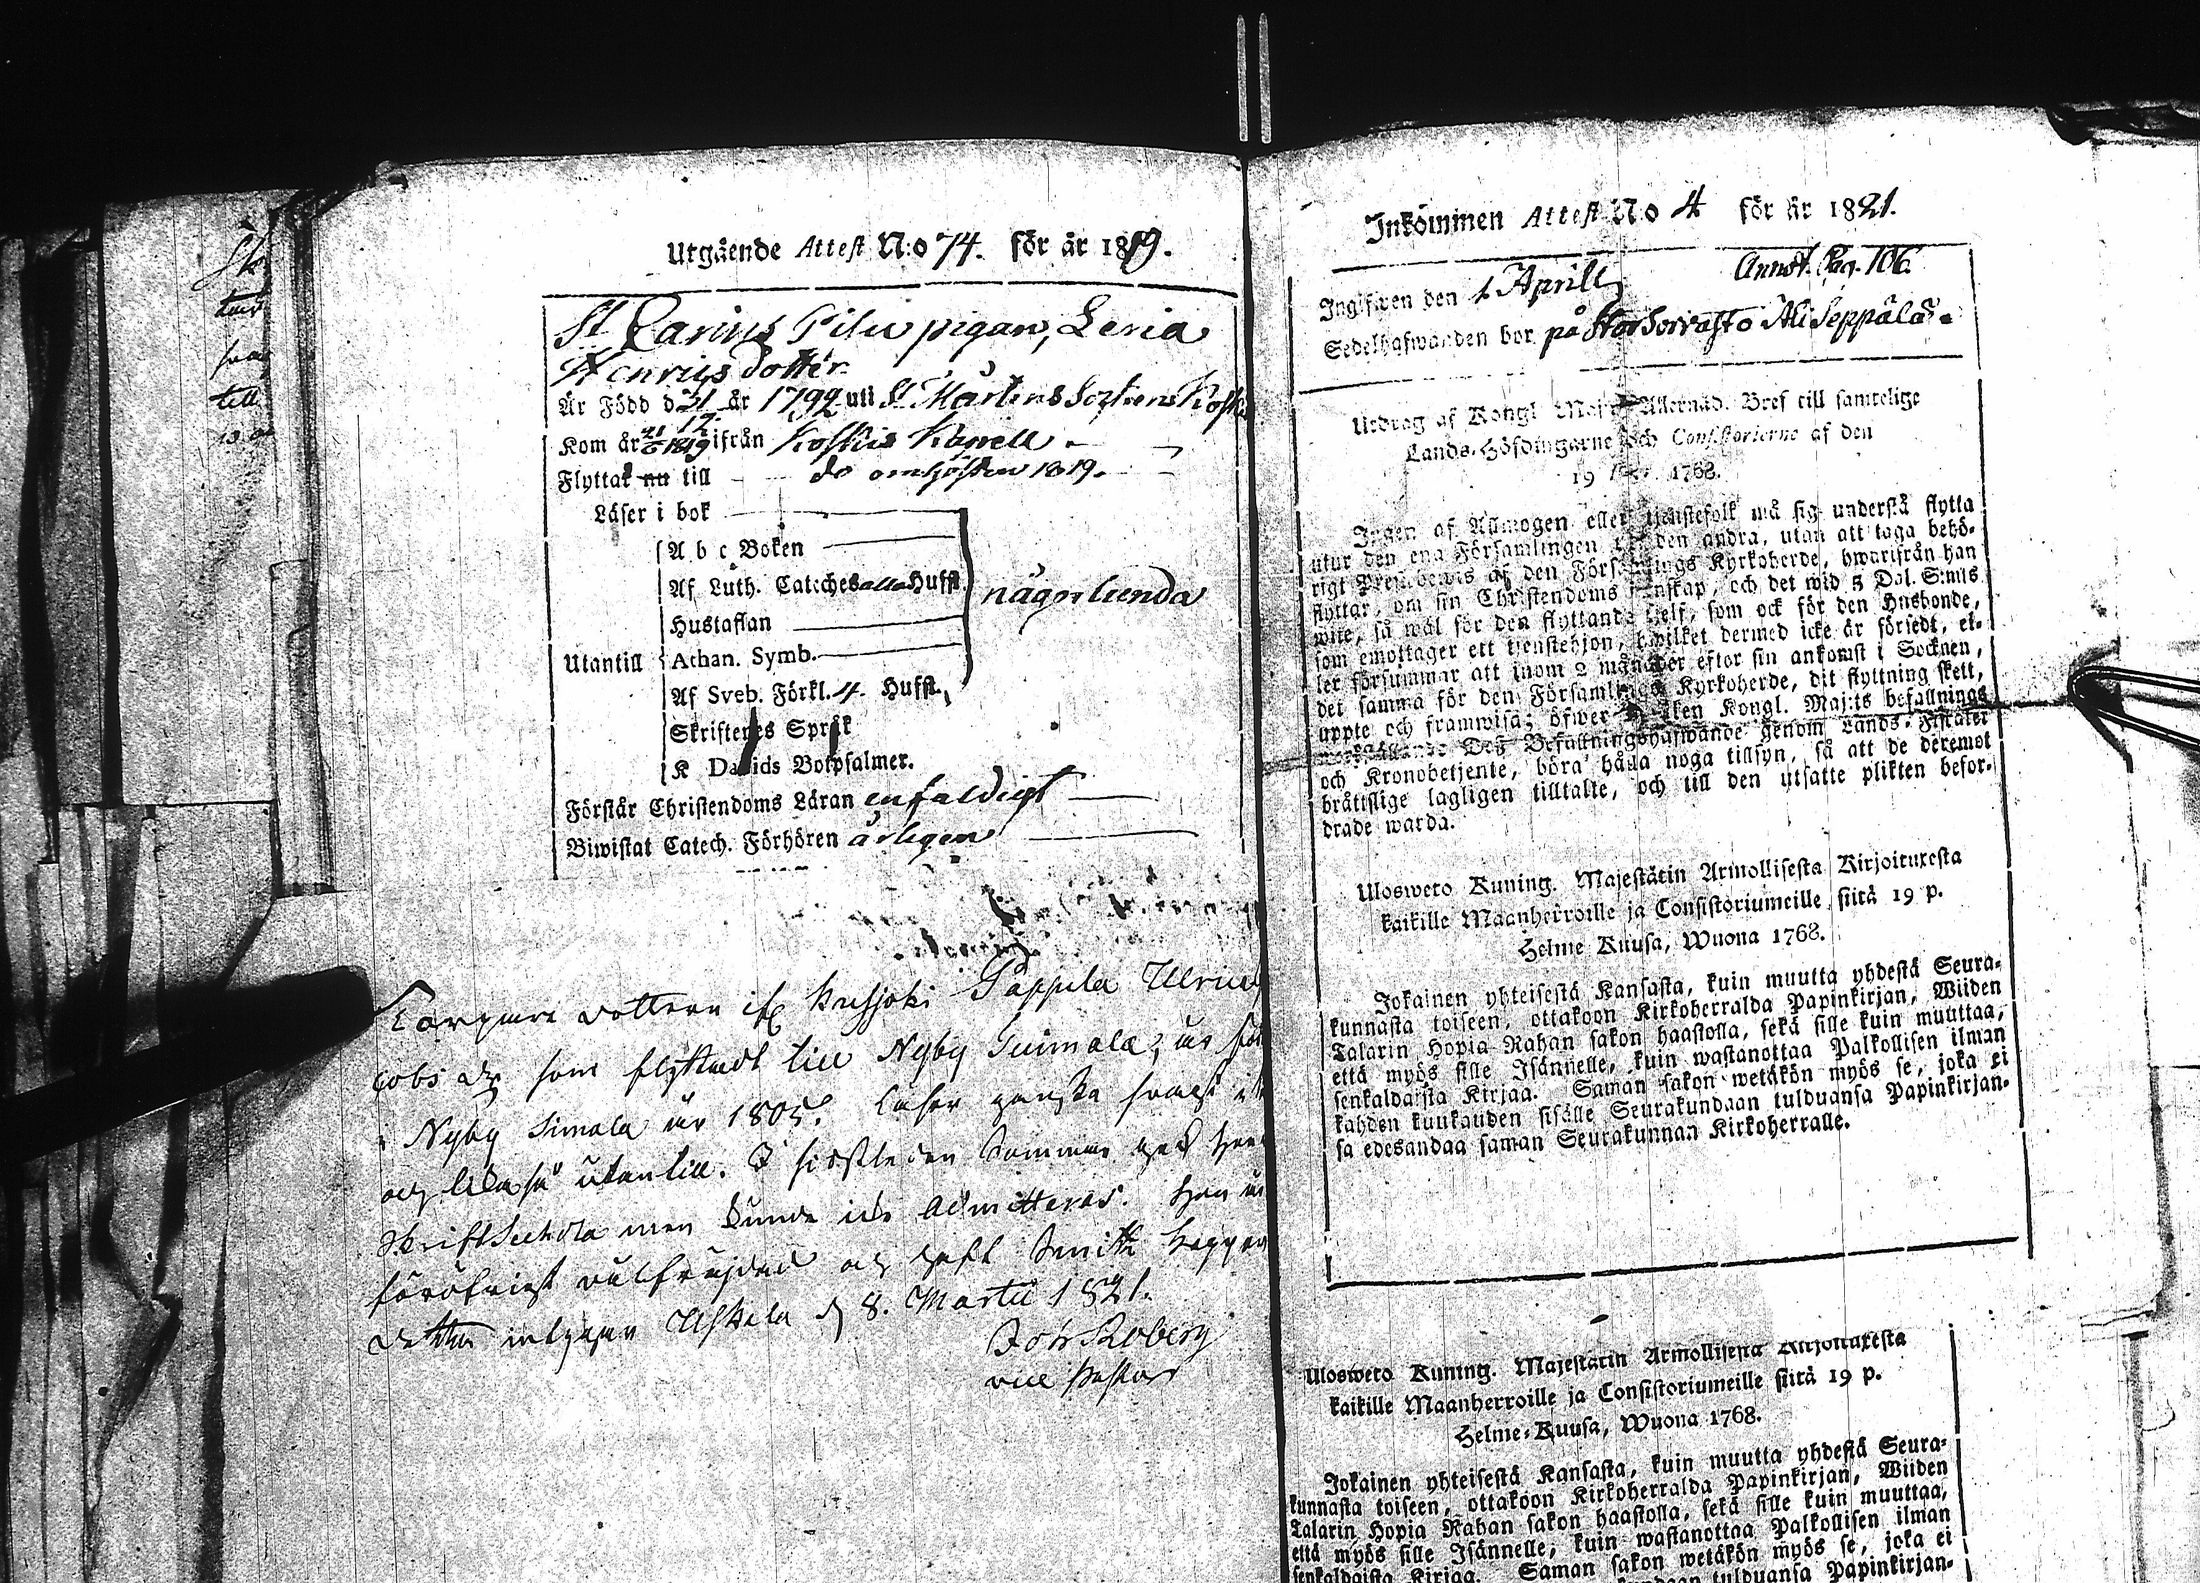 Utgående Attest N:o 74. för år 1819.
St Carins Pilu pigan, Leria
Henrics dotter
Är Född d 21 år 1792 uti St Mårtens Sockens Koskis
12
Kom år 21/6 1819 ifrån Koskis Kapell
Flyttat nu till do om hösten 1819.
Läser i bok
A b c Boken
Af Luth. Cateches alla Hufst
någorlunda
Hustaflan
Utantill
Athan. Symb.
Af Sveb. Förkl. 4. Hufst.
Skriftenes Språk
K Davids Botpsalmer.
Förstår Christendoms Läran enfaldigt
Biwistat Catech. Förhören årligen
Torpare dottern Pappila Ulrica
cobs dr som flyttadt till Nyby Simola, är
i Nyby Simola år 1805. läser ganska svagt i
och likaså utantill. I sistleden Sommar gick hon
Skriftschola men kunde icke Admitteras. Hon är
föröfrigt välfräjdad och haft
Uskela d 8. Martii 1821.
Joh Roberg
vice Pastor
Inkommen Attest N:o 4 för år 1821.
Annot. Pag. 106.
Ingifwen den 1 Aprill
Sedelhafwanden bor på Storsorvasto Ali Seppälä.
Utdrag af Kongl. Maj:ts Allernåd. Bref till samtelige
Lands-Höfdingarne och Consistorierne af den
19 1768.
Ingen af Allmogen eller tjenstefolk må sig understå flytta
utur den ena Församlingen till den andra, utan att taga behö-
rigt Prestbewis af den Församlings Kyrkoherde, hwarifrån han
flyttar, om sin Christendoms kunskap, och det wid 5 Dal. S:mts
wite, så wäl för den flyttande sielf, som ock för den Husbonde,
som emottager ett tjenstehjon, hwilket dermed icke är försedt, el-
ler försummar att inom 2 månader efter sin ankomst i Socknen,
det samma för den Församlings Kyrkoherde, dit flyttning skett,
uppte och framwisa; öfwer hwilken Kongl. Maj:ts befallnings
Des Befallningshafwande genom Lands-Fiskaler
och Kronobetjente, böra hålla noga tillsyn, så att de deremot
bråttslige lagligen tilltalte, och till den utsatte plikten befor-
drade warda.
Ulosweto Kuning. Majestätin Armollisesta Kirjoituxesta
kaikille Maanherroille ja Consistoriumeille siitä 19 p.
Helme Kuusa, Wuona 1768.
Jokainen yhteisestä Kansasta, kuin muutta yhdestä Seura-
kunnasta toiseen, ottakoon Kirkoherralda Papinkirjan, Wiiden
Talarin Hopia Rahan sakon haastolla, sekä sille kuin muuttaa,
että myös sille Isännelle, kuin wastanottaa Palkollisen ilman
senkaldaista Kirjaa. Saman sakon wetäkön myös se, joka ei
kahden kuukauden sisälle Seurakundaan tulduansa Papinkirjan-
sa edesandaa saman Seurakunnan Kirkoherralle.
Uloswero Kuning. Majestätin Armollisesta Kirjoituxesta
kaikille Maanherroille ja Consistoriumeille siitä 19 p.
Helme-Kuusa, Wuona 1768.
Jokainen yhteisestä Kansasta, kuin muutta yhdestä Seura-
kunnasta toiseen, ottakoon Kirkoherralda Papinkirjan, Wiiden
Talarin Hopia Rahan sakon haastolla, sekä sille kuin muuttaa,
että myös sille Isännelle, kuin wastanottaa Palkollisen ilman
senkaldaista Kirjaa. Saman sakon wetäkön myös se, joka ei
tulduansa Papinkirjan-